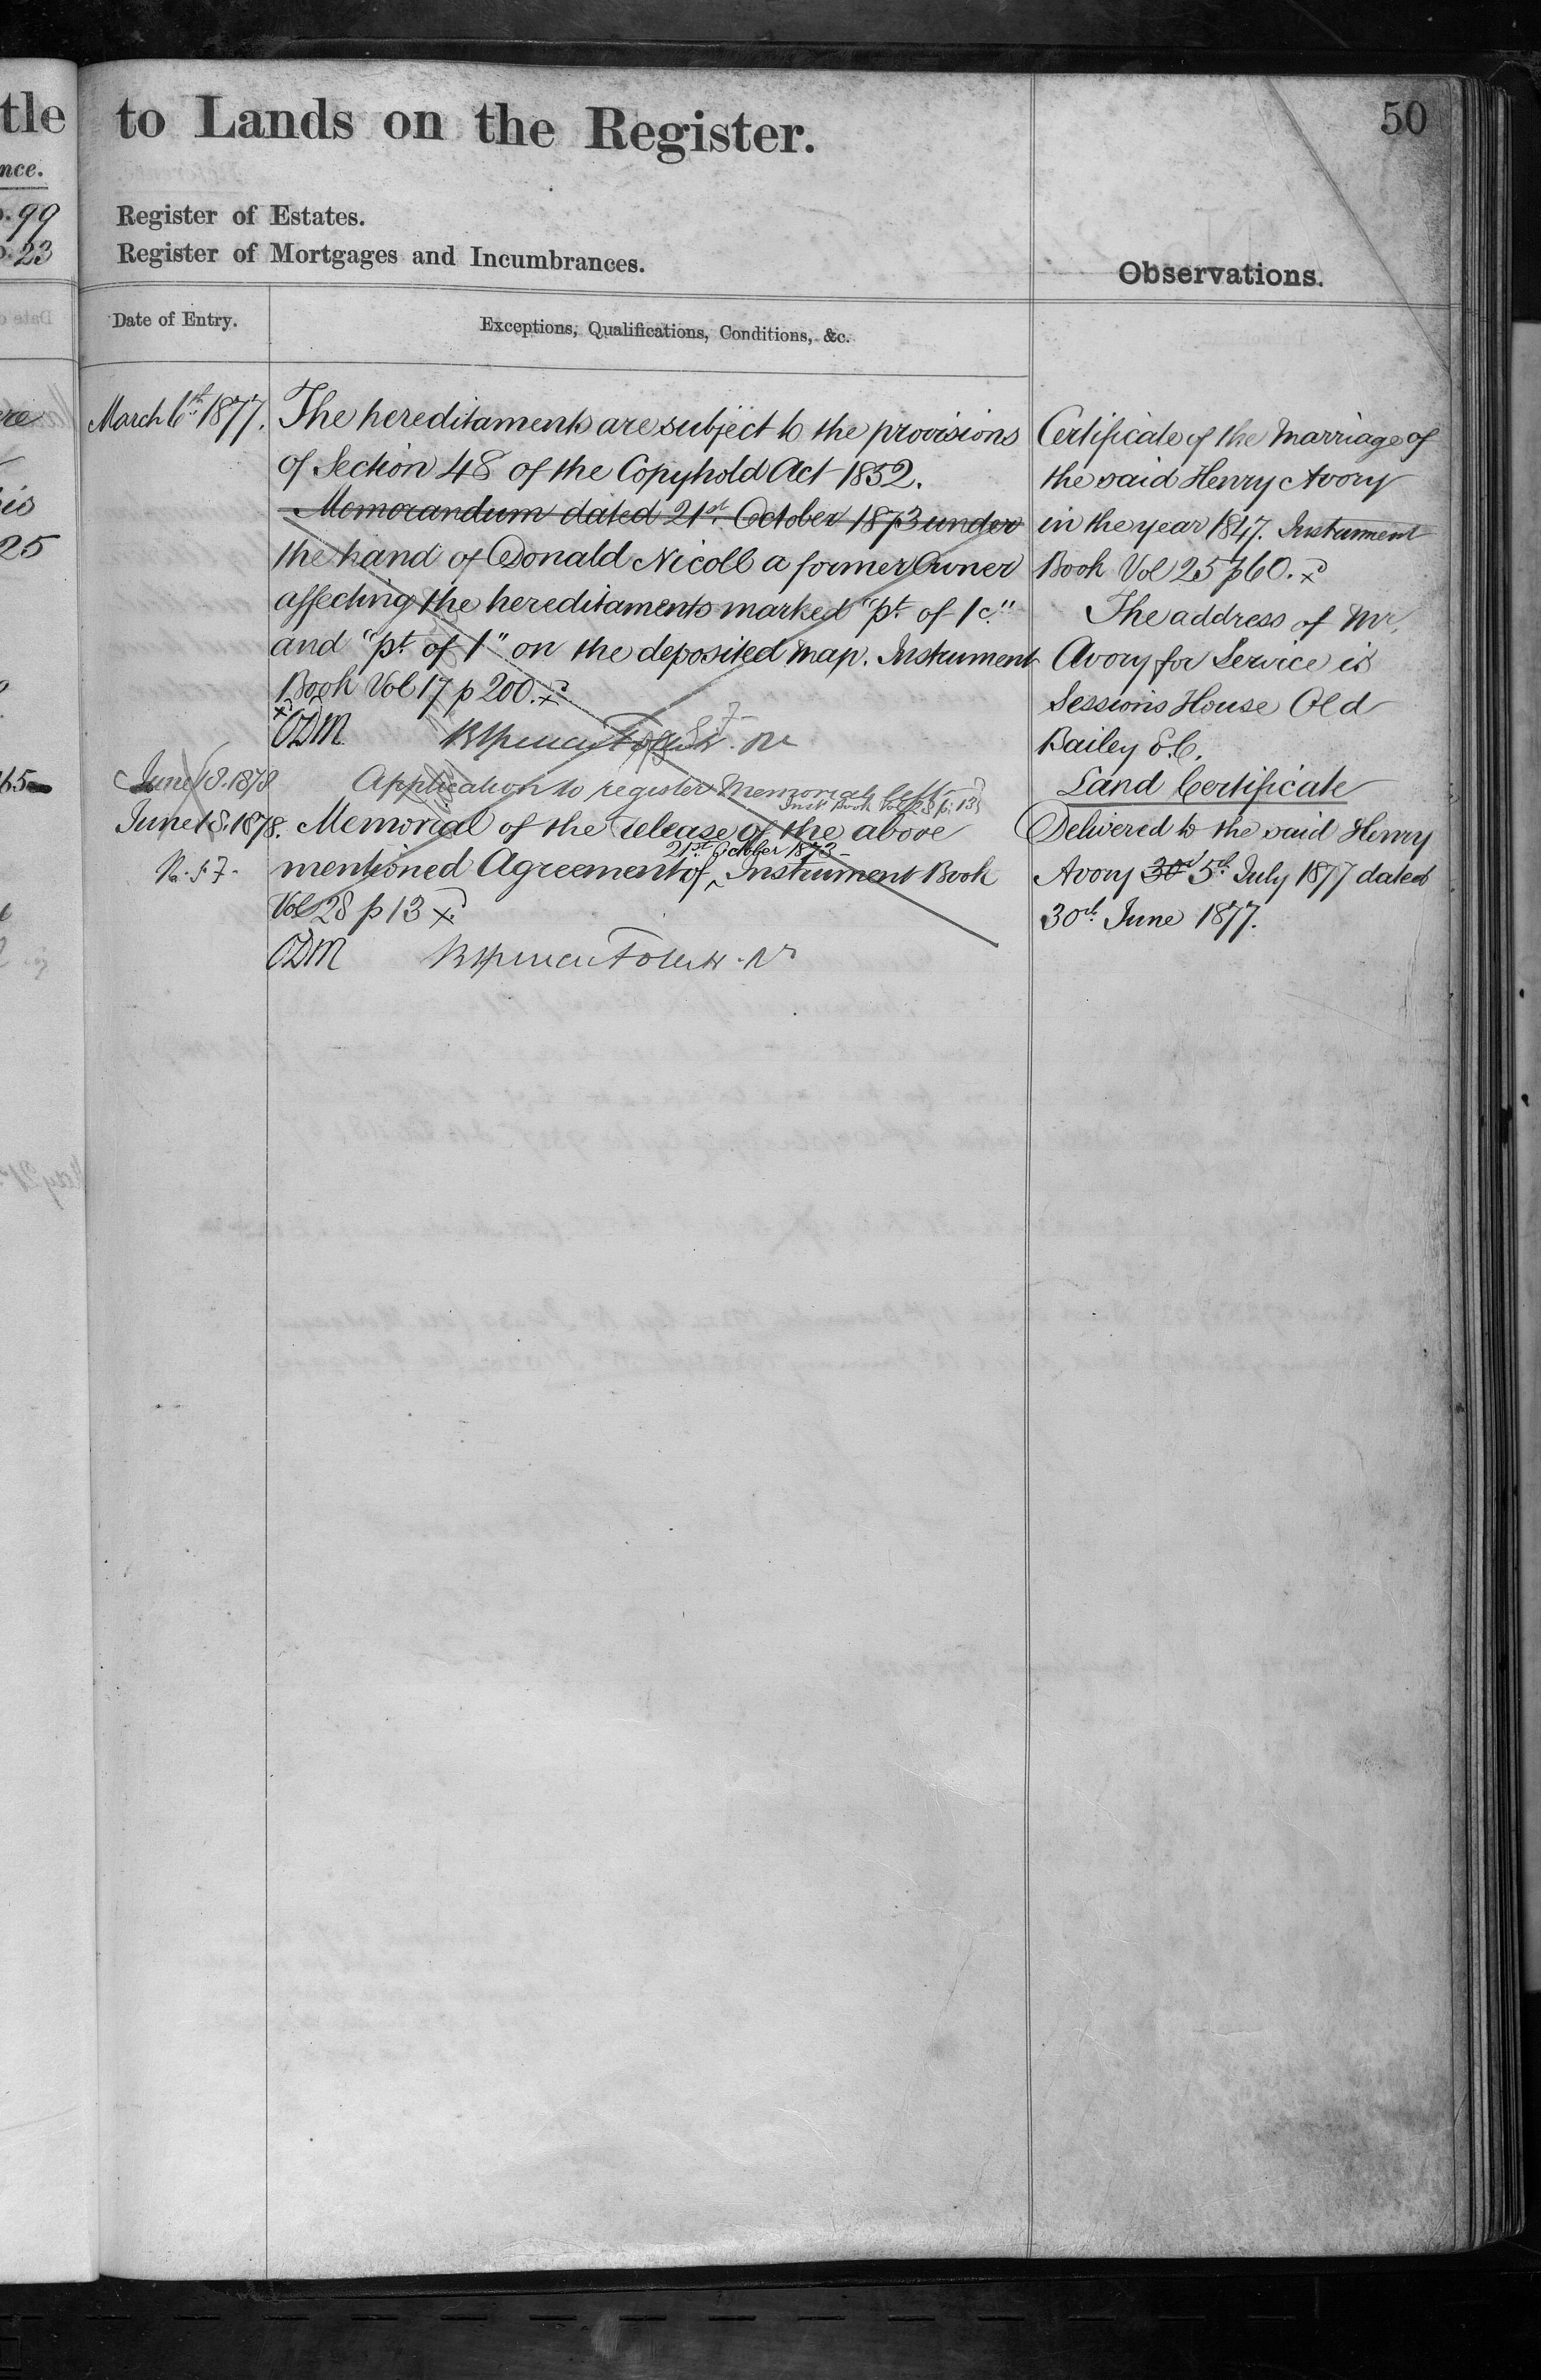 tle
nce.
99
23
25
to Lands on the Register.
50
Register of Estates.
Register of Mortgages and Incumbrances.
Observations.
Date of Entry.
Exceptions, Qualifications, Conditions, &c.
March 6th 1877.
The hereditaments are subject to the provisions
of Section 48 of the Copyhold Act 1852.
Memorandum dated 21st October 1873 under
the hand of Donald Nicoll a former Owner
affecting the hereditaments marked "pt of 1c."
and "pt of 1" on the deposited map. Instrument
Book Vol 17 p 200.
ODM
June 18. 1878
Application to register Memorial left
Inst Book Vol 28 p. 13
June 18. 1878.
Memorial of the release of the above
21st October 1873
mentioned Agreement of Instrument Book
Vol 28 p 13
ODM
Certificate of the Marriage of
the said Henry Avory
in the year 1847. Instrument
Book Vol 25 p 60.
The address of Mr.
Avory for Service is
Sessions House Old
Bailey E.C.
Land Certificate
Delivered to the said Henry
Avory 30th 5th July 1877 dated
30th June 1877.